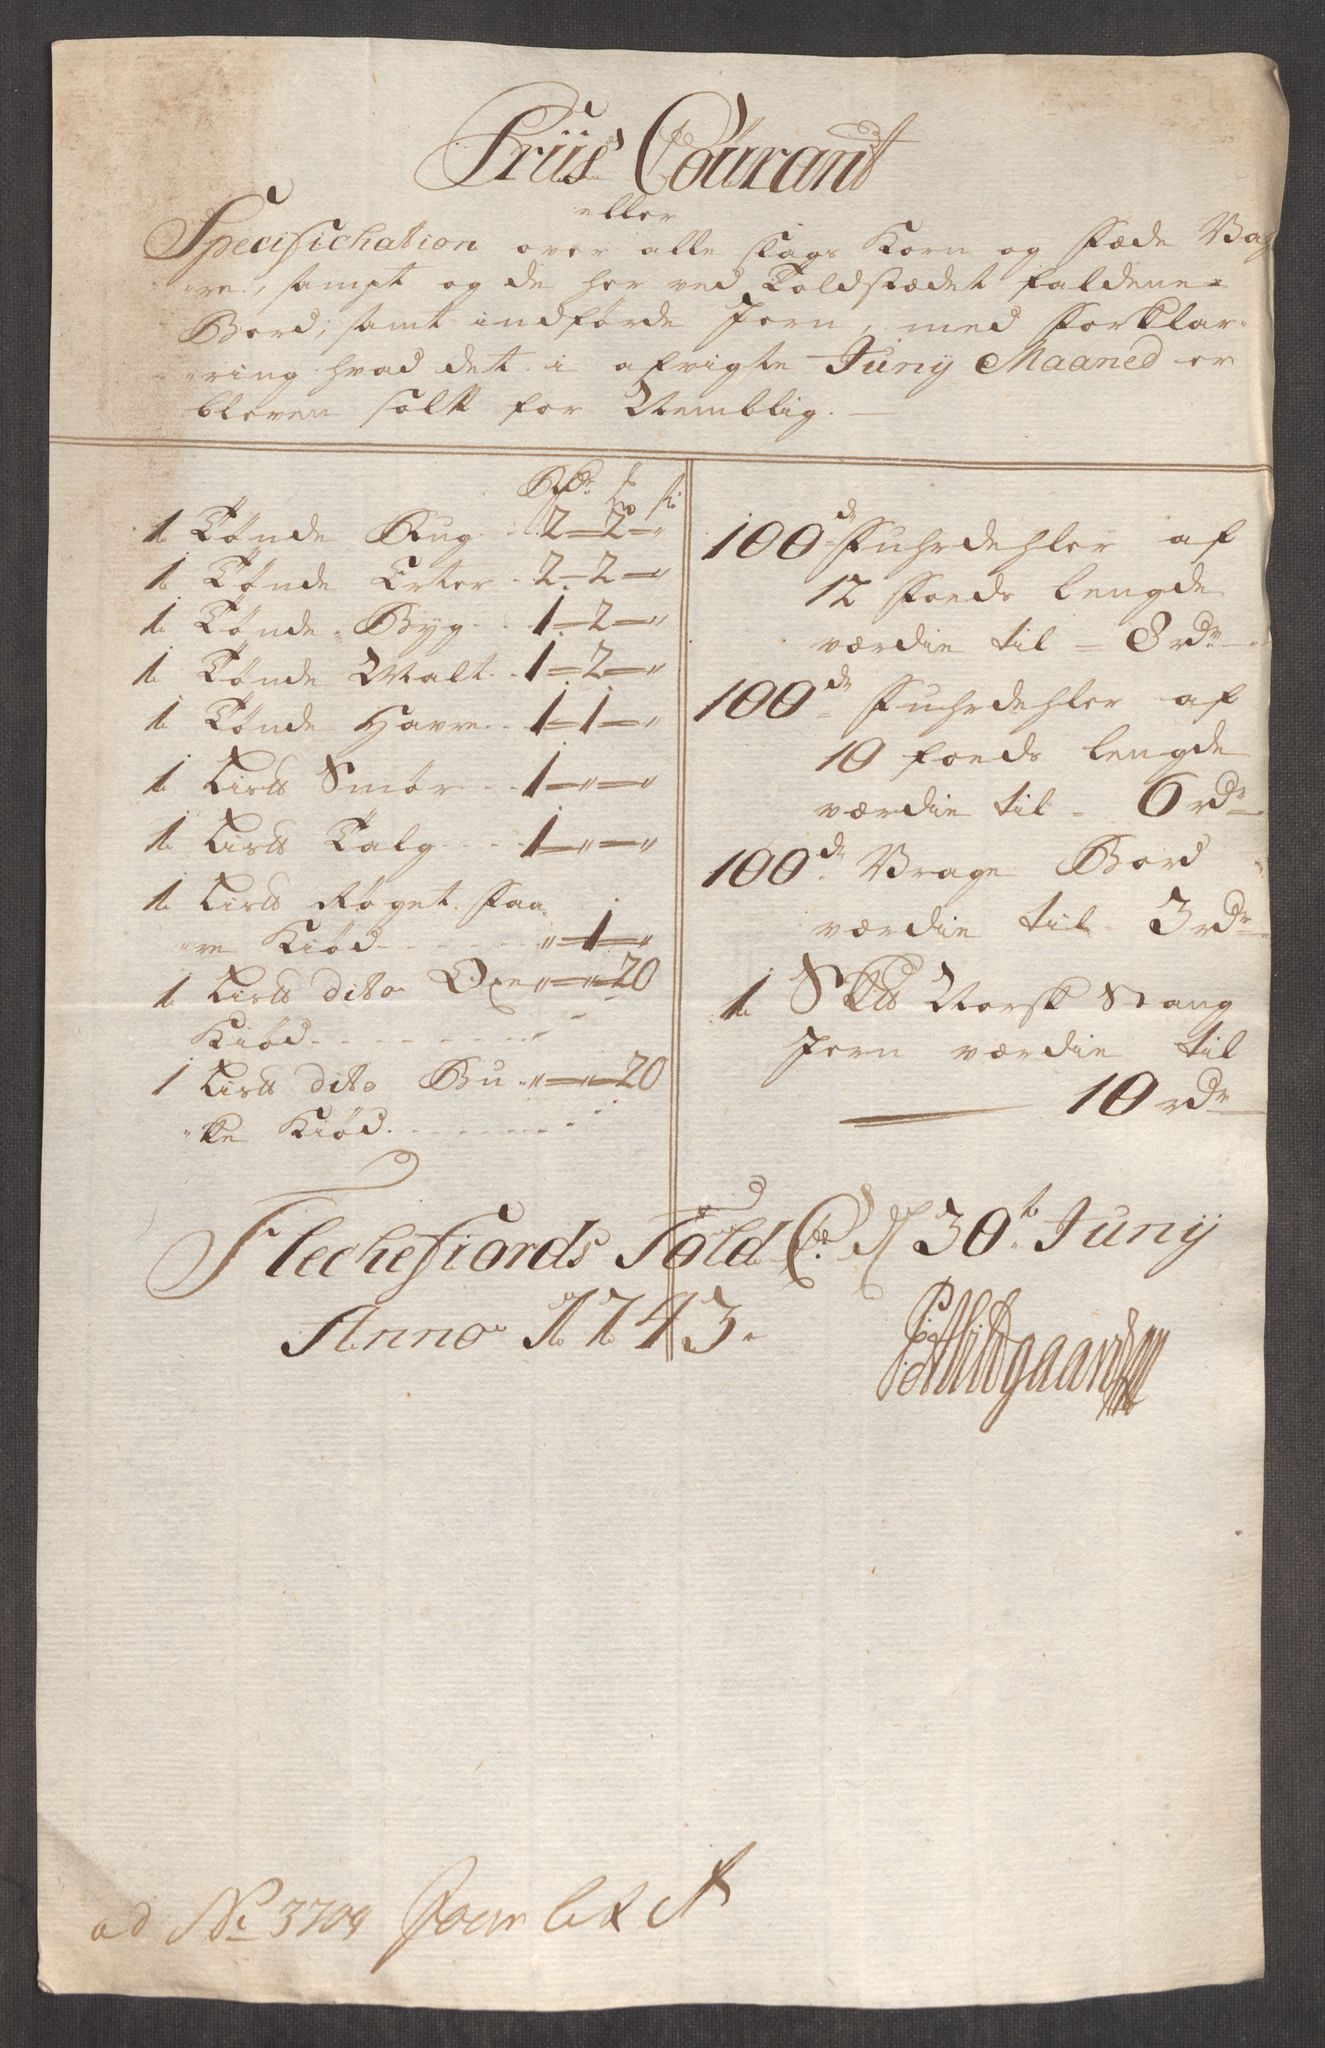 Priis Courant
eller
Specifichation over alle slags Korn og Fæde Vah
re, sampt og de her ved Toldstædet faldene
Bord, samt indførde Jern, med Forklar-
ring hvad det i afvigte Junij Maaned er
bleven solt for Nemblig.
Rdr. ß
1 Tønde Rug 2 - 2 - "
1 Tønde Erter 2 - 2 - "
1 Tønde Byg 1 - 2 - "
1 Tønde Malt 1 - 2 - "
1 Tønde Havre 1 - 1 - "
1 Lispd Smør 1 - " - "
1 Lispd Talg 1 - " - "
1 Lispd Røget Faa
re Kiød " - 1 - "
1 Lispd dito Oxe " - " - 20
Kiød
1 Lispd dito Bu " - " - 20
ke Kiød
100de Fuhrdehler af
12 Foeds lengde
værdie til - 8 rdr
100de Fuhrdehler af
10 foeds lengde
værdie til - 6 rdr
100de Vrage Bord
værdie til 3 rdr
1 Skpd Norsk Stang
Jern værdie til
10 rdr
Flechefiords Told C. d 30te Junij
Anno 1743.
ad No 3709 Jour